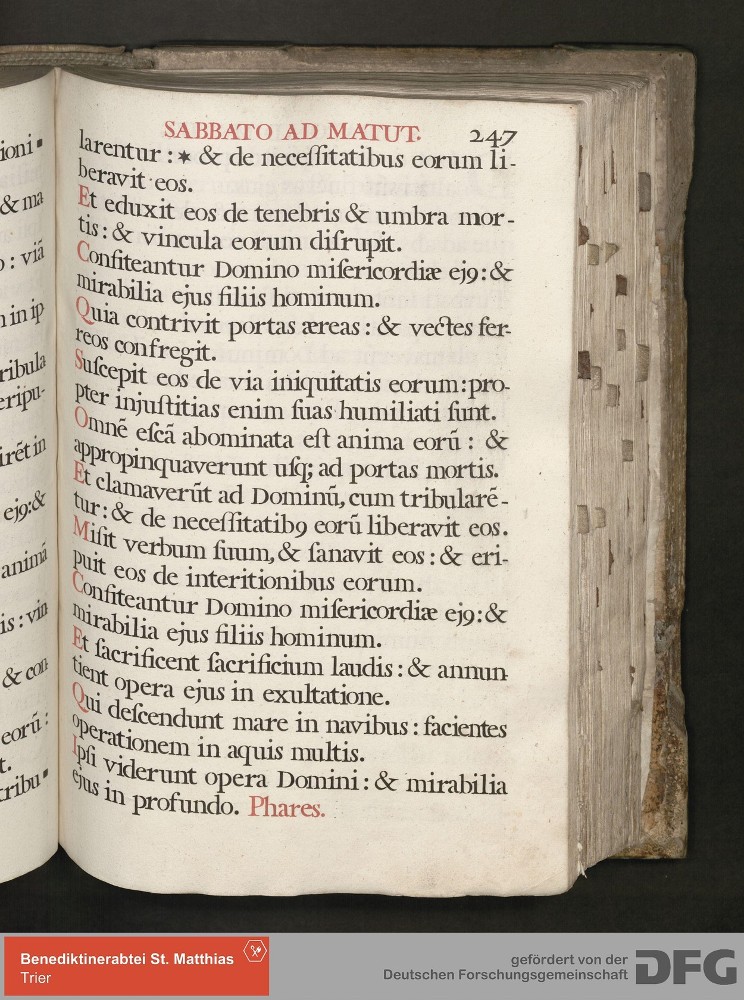 ioni
& ma
o: viã
n in ip
ribula
eripu-
irẽt in
ejꝰ: &
animã
is: vin
& con
eorũ:
t.
tribu
SABBATO AD MATUT. 247
larentur: * & de neceſſitatibus eorum li-
beravit eos.
Et eduxit eos de tenebris & umbra mor-
tis: & vincula eorum diſrupit.
Confiteantur Domino miſericordiæ ejꝰ: &
mirabilia ejus filiis hominum.
Quia contrivit portas æreas: & vectes fer-
reos confregit.
Suſcepit eos de via iniquitatis eorum: pro-
pter injuſtitias enim ſuas humiliati ſunt.
Omnẽ eſcã abominata eſt anima eorũ: &
appropinquaverunt uſq; ad portas mortis.
Et clamaverũt ad Dominũ, cum tribularẽ-
tur: & de neceſſitatibꝰ eorũ liberavit eos.
Miſit verbum ſuum, & ſanavit eos: & eri-
puit eos de interitionibus eorum.
Confiteantur Domino miſericordiæ ejꝰ: &
mirabilia ejus filiis hominum.
Et ſacrificent ſacrificium laudis: & annun
tient opera ejus in exultatione.
Qui deſcendunt mare in navibus: facientes
operationem in aquis multis.
Ipſi viderunt opera Domini: & mirabilia
ejus in profundo. Phares.
Benediktinerabtei St. Matthias
Trier
gefördert von der
Deutschen Forschungsgemeinschaft
DFG